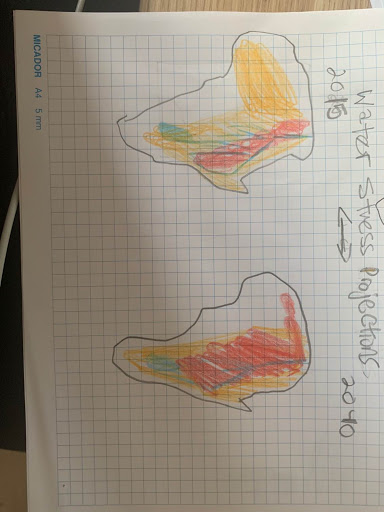 Water Stress Projections.
2015
2040
MICADOR A4 5 mm